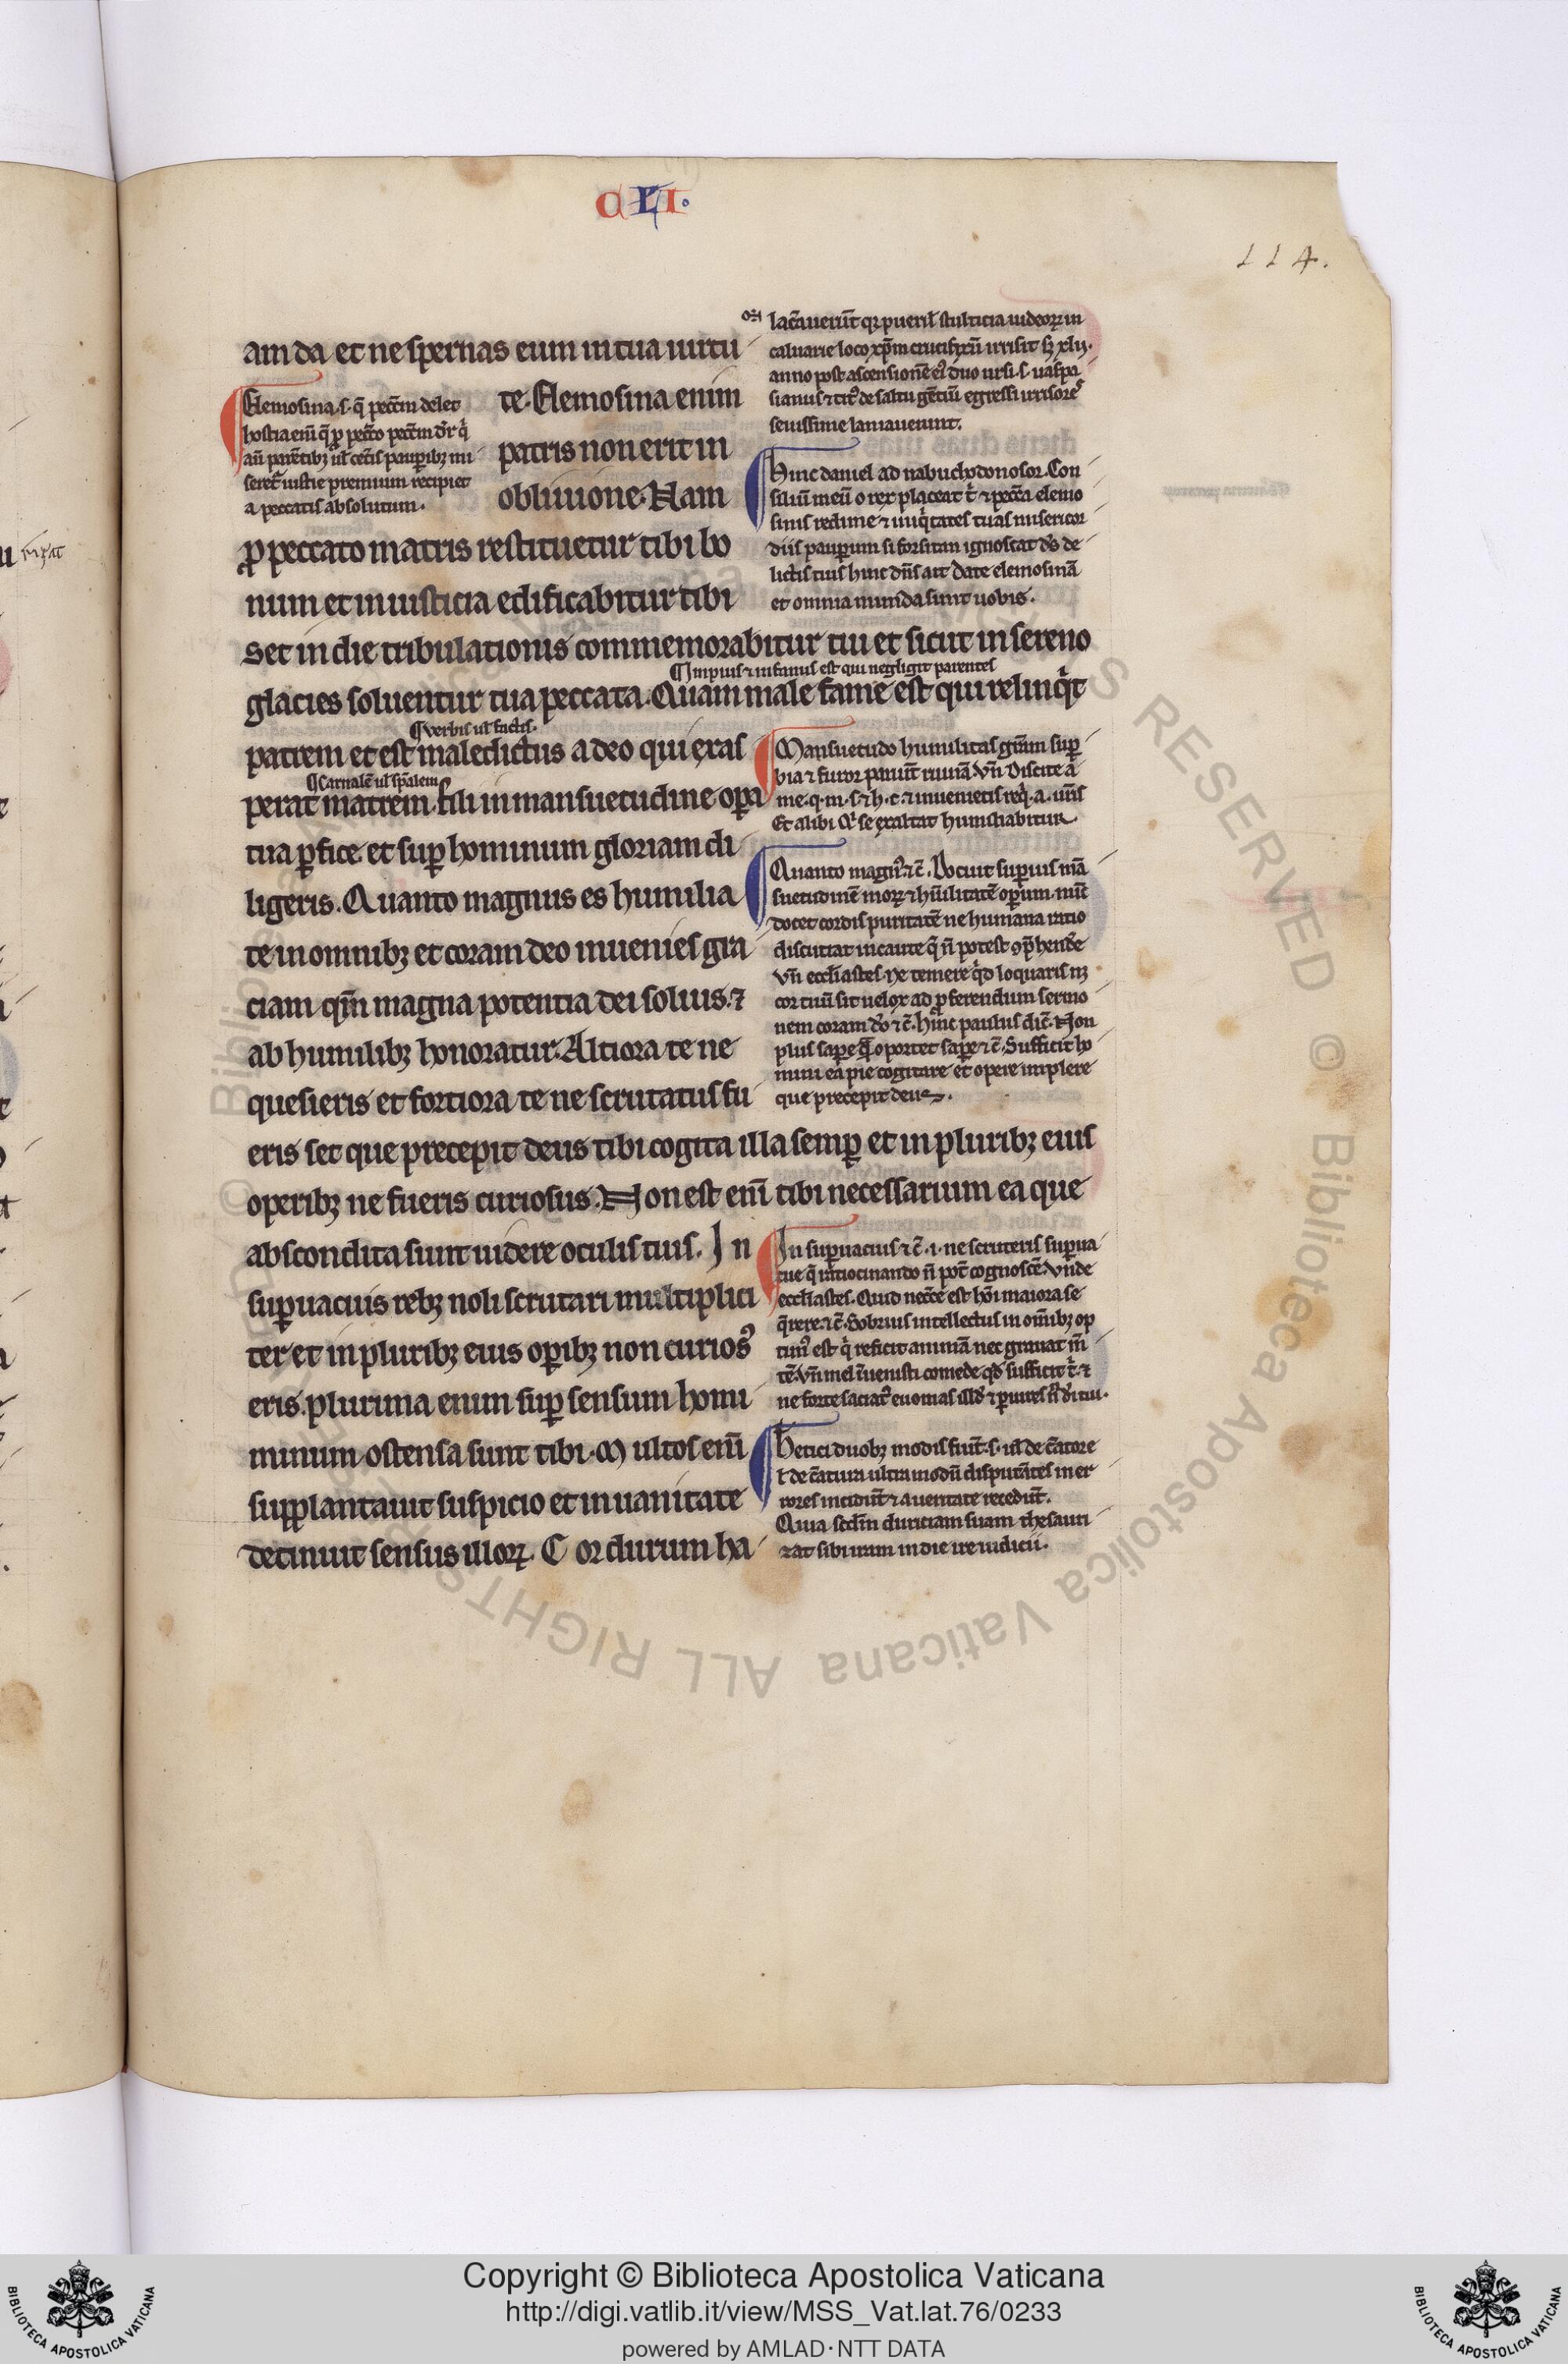 CLI.
114.
am da et ne spernas eum in tua uirtu
te. Elemosina enim
patris non erit in
obliuione. Nam
ꝓ peccato matris restituetur tibi bo
num et in iusticia edificabitur tibi
set in die tribulationis commemorabitur tui et sicut in sereno
¶ Impius ⁊ infamis est qui negligit parentes
glacies soluentur tua peccata. Quam male fame est qui relinqͥt
¶ verbis uł factis.
patrem et est maledictus a deo qui exas
¶ Carnalē uł sp̄alem
perat matrem. Fili in mansuetudine oꝑa
tua ꝑfice et suꝑ hominum gloriam di
ligeris. Quanto magnus es humilia
te in omnibꝫ et coram deo inuenies gra
ciam qm̄ magna potentia dei solius. ⁊
ab humilibꝫ honoratur. Altiora te ne
quesieris et fortiora te ne scrutatus fu
eris set que precepit deus tibi cogita illa semꝑ et in pluribꝫ eius
operibꝫ ne fueris curiosus. Non est enī tibi necessarium ea que
abscondita sunt uidere oculis tuis. In
suꝑuacuis rebꝫ noli scrutari multiplici
ter et in pluribꝫ eius oꝑibꝫ non curiosꝰ
eris. plurima enim suꝑ sensum homi
minum ostensa sunt tibi. Multos enī
supplantauit suspicio et in uanitate
detinuit sensus illoꝝ. Cor durum ha
Elemosina .s. q̄ pecc̄m delet
hostia enī q̄ ꝓ pecc̄o pecc̄m dr̄ qͥ
aū parētibꝫ uł cet̄is pauꝑibꝫ mi
seret̄ iustie premium recipiet
a peccatis absolutum.
lac̄auerūt qꝛ pueril̄ stulticia iudeoꝝ in
caluarie loco xp̄m crucifixū irrisit sꝫ xlij.
anno post ascensionē eiꝰ duo ursi .s. uaspa
sianus ⁊ titꝰ de saltu gētiū egressi irrisores
seuissime laniauerunt.
Hinc daniel ad nabuchodonosor. Con
siliū meū o rex placeat tͥ ⁊ pecc̄a elemo
sinis redime ⁊ iniqͥtates tuas misericor
diis pauꝑum si forsitan ignoscat dš de
lictis tuis hinc dn̄s ait Date elemosinā
et omnia munda sunt uobis.
Mansuetudo humilitas gr̄am suꝑ
bia ⁊ furor pariūt ruinā vn̄ Discite a
me .q. m. s. ⁊ h. c. ⁊ inuenietis reqͥ. a. ur̄is
Et alibi Qͥ se exaltat humiliabitur
Quanto magnꝰ ⁊ c̄. Docuit suꝑius mā
suetudinē moꝝ ⁊ hūilitatē oꝑum. nūc
docet cordis puritatē ne humana ratio
discutiat incaute q̄ n̄ potest ꝯp̄hend̄e
Vn̄ eccl̄iastes. Ne temere qͥd loquaris nꝫ
cor tuū sit uelox ad ꝓferendum sermo
nem coram dō ⁊ c̄. hinc paulus dic̄. Non
plus saꝑe qͣ oportet saꝑe ⁊ c̄. Sufficit ho
mini ea pie cogitare et opere implere
que precepit deus.
In suꝑuacuis ⁊ c̄ .i. ne scruteris suꝑua
cue q̄ ratiocinando n̄ pot̄ cognosc̄e. Vnde
eccl̄iastes. Quid necc̄e est hōi maiora se
q̄rere ⁊ c̄. Sobrius intellectus in om̄ibꝫ op
timꝰ est qͥ reficit animā nec grauat m̄
tē. Vn̄ mel īuenisti comede qd̄ sufficit tͥ ⁊
ne forte saciatꝰ euomas illd̄
Hetici duobꝫ modis fiūt .s. uł de c̄atore
ł de c̄atura ultra modū disputātes in er
rores incidūt ⁊ a ueritate recedūt.
Quia scd̄m duriciam suam thesauri
zat sibi iram in die ire iudicii.
Copyright © Biblioteca Apostolica Vaticana
http://digi.vatlib.it/view/MSS_Vat.lat.76/0233
powered by AMLAD·NTT DATA
BIBLIOTECA APOSTOLICA VATICANA
BIBLIOTECA APOSTOLICA VATICANA